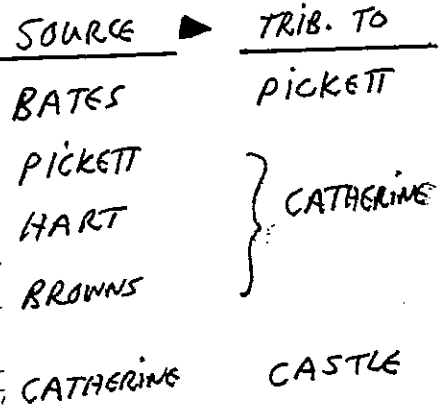 SOURCE ▶ TRIB. TO
BATES PICKETT
PICKETT
HART
CATHERINE
BROWNS
CATHERINE CASTLE